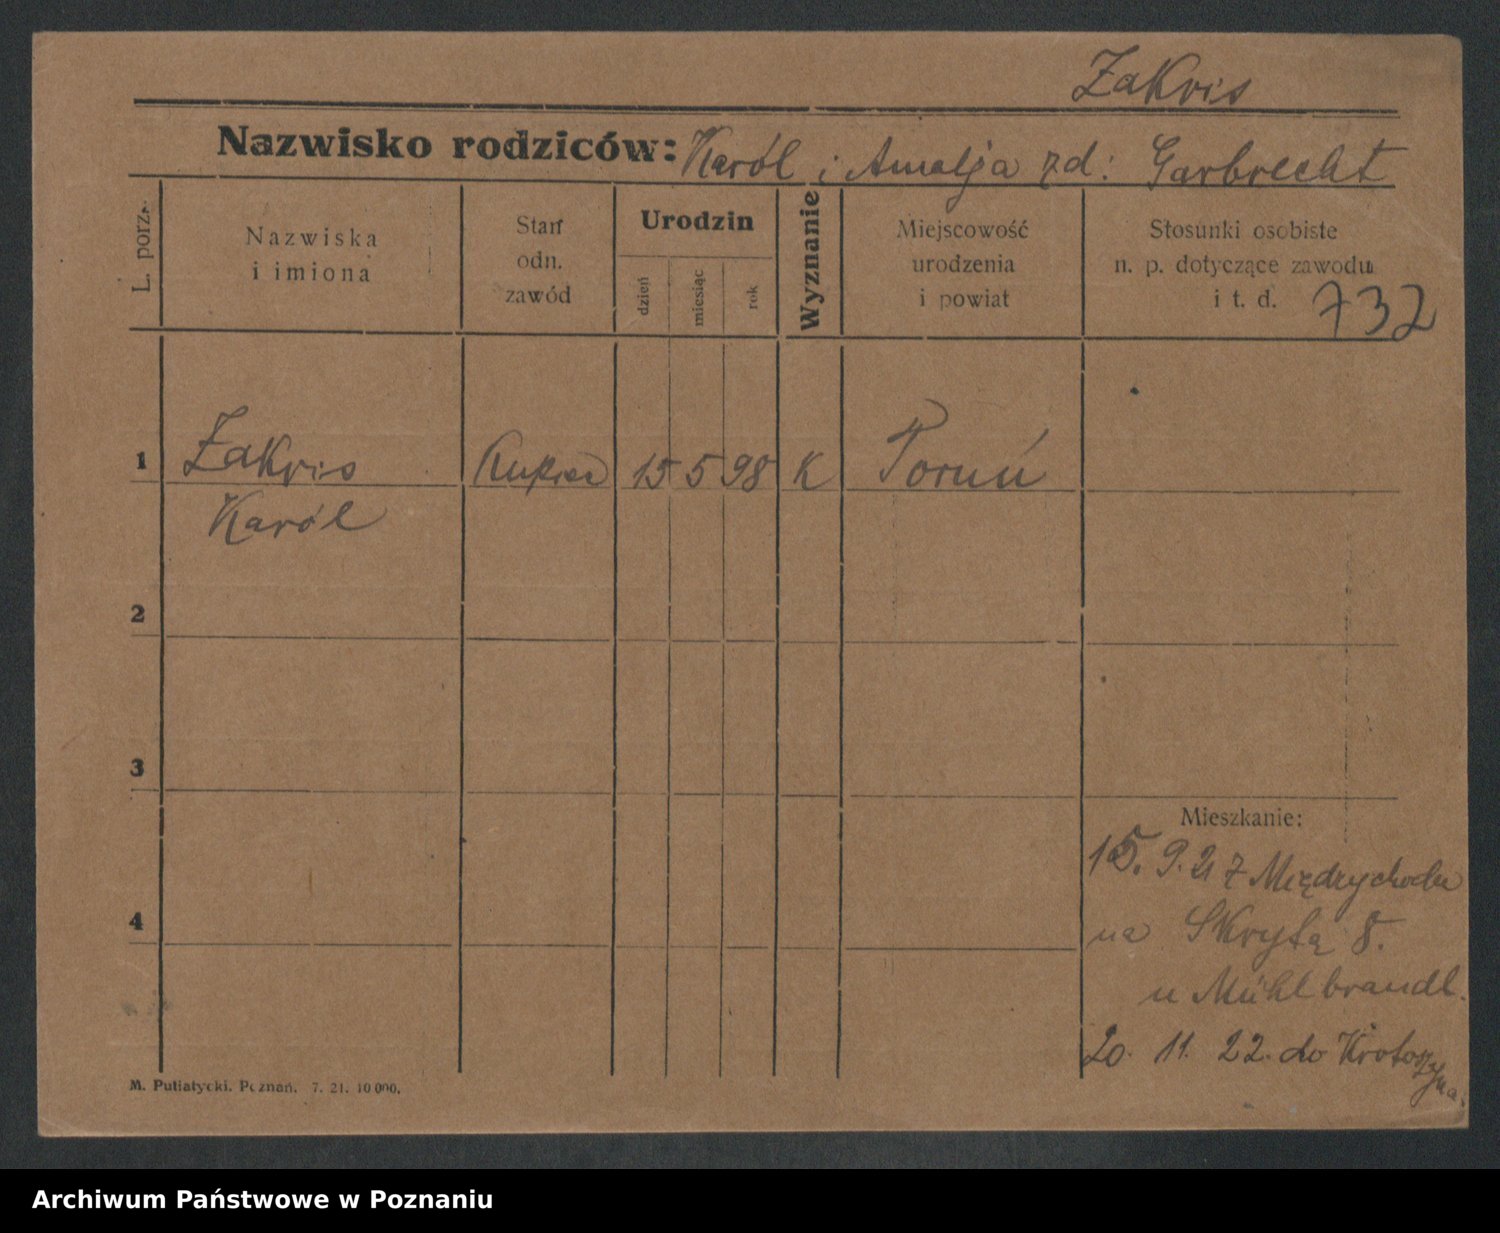 Zakris
Nazwisko rodziców: Karól i Amalja zd: Garbrecht
L. porz.
Nazwiska
i imiona
Stan
odn.
zawód
Urodzin
dzień
miesiąc
rok
Wyznanie
Miejscowość
urodzenia
i powiat
Stosunki osobiste
n. p. dotyczące zawodu
i t. d. 732
1 Zakris Kupiec 15 5 98 K Toruń
Karól
2
3
Mieszkanie:
15. 9. 21 z Międzychodu
4
na Skrytą 8.
u Mühlbrandl.
20. 11. 22. do Krotoszyna.
M. Putiatycki. Poznań. 7. 21. 10 000.
Archiwum Państwowe w Poznaniu